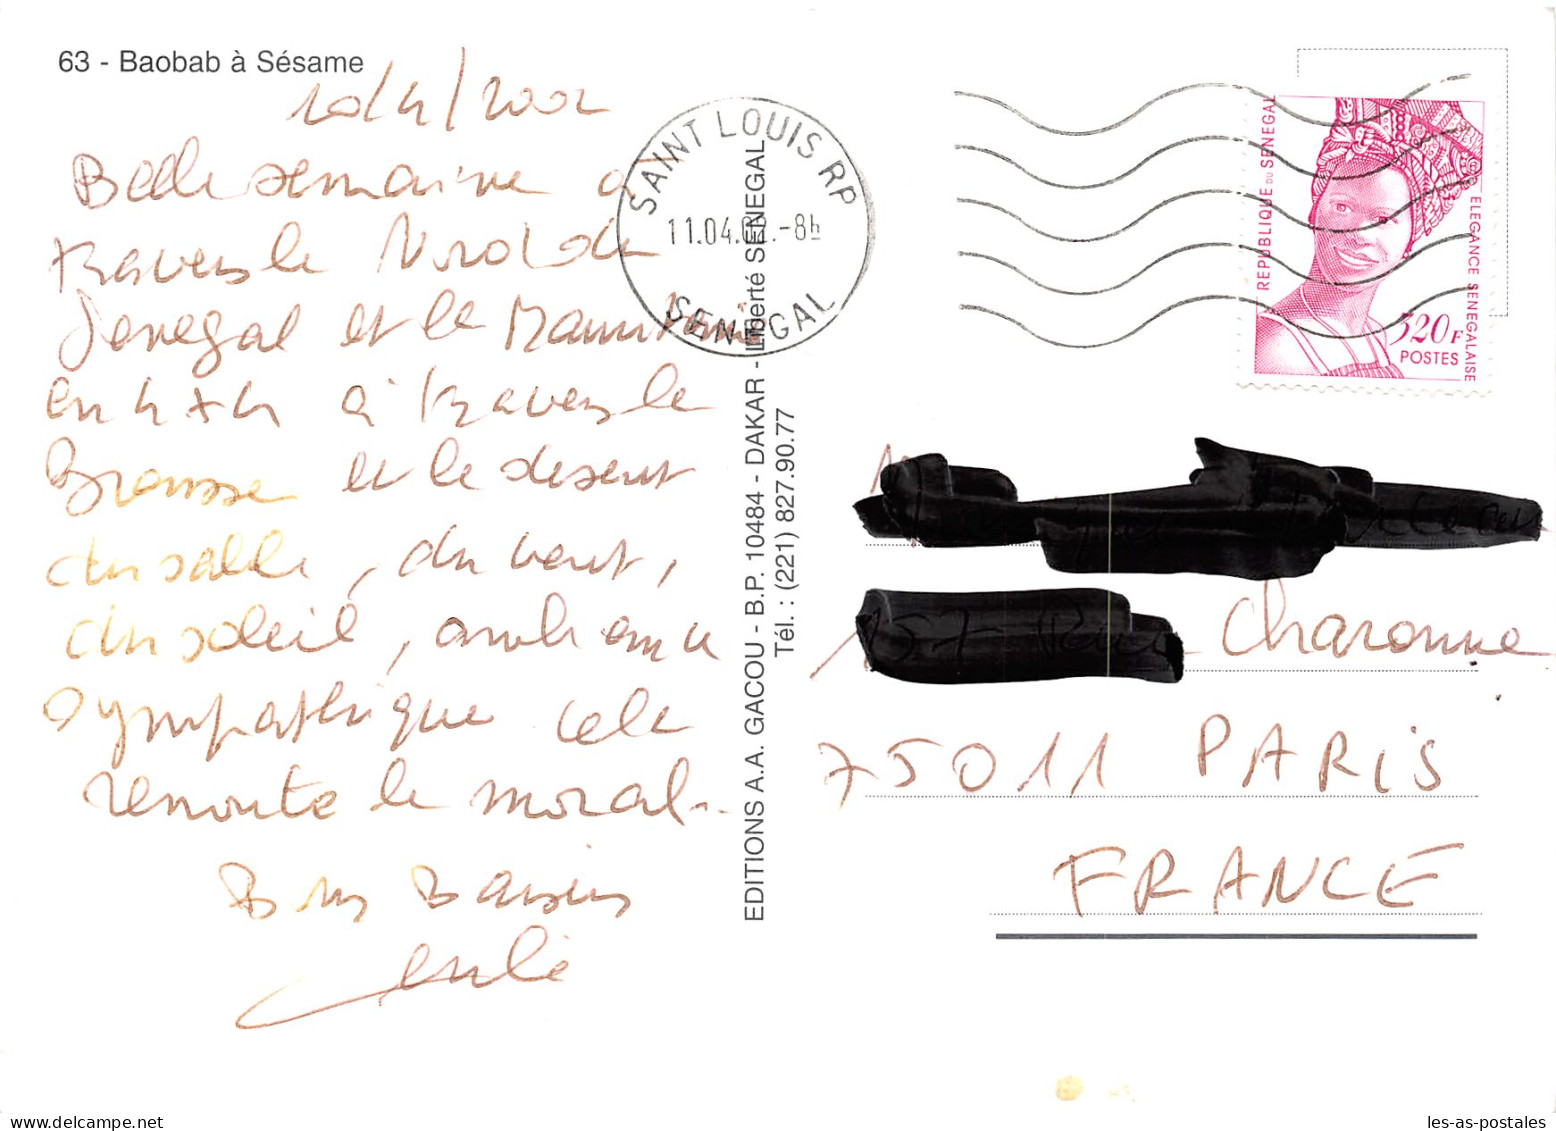 63 - Baobab à Sésame
10/4/2002
Belle semaine à
travers le Nord du
Senegal et la Mauritanie
en 4x4 à travers la
Brousse et le desert
du sable, du vent,
du soleil, ambiance
sympathique cela
remonte le moral..
Bons Baisers
SAINT LOUIS RP
11.04.02.-8h
SENEGAL
EDITIONS A.A. GACOU - B.P. 10484 - DAKAR - Liberté SENEGAL
Tél. : (221) 827.90.77
REPUBLIQUE DU SENEGAL
ELEGANCE SENEGALAISE
320F
POSTES
Charonne
75011 PARIS
FRANCE
les-as-postales